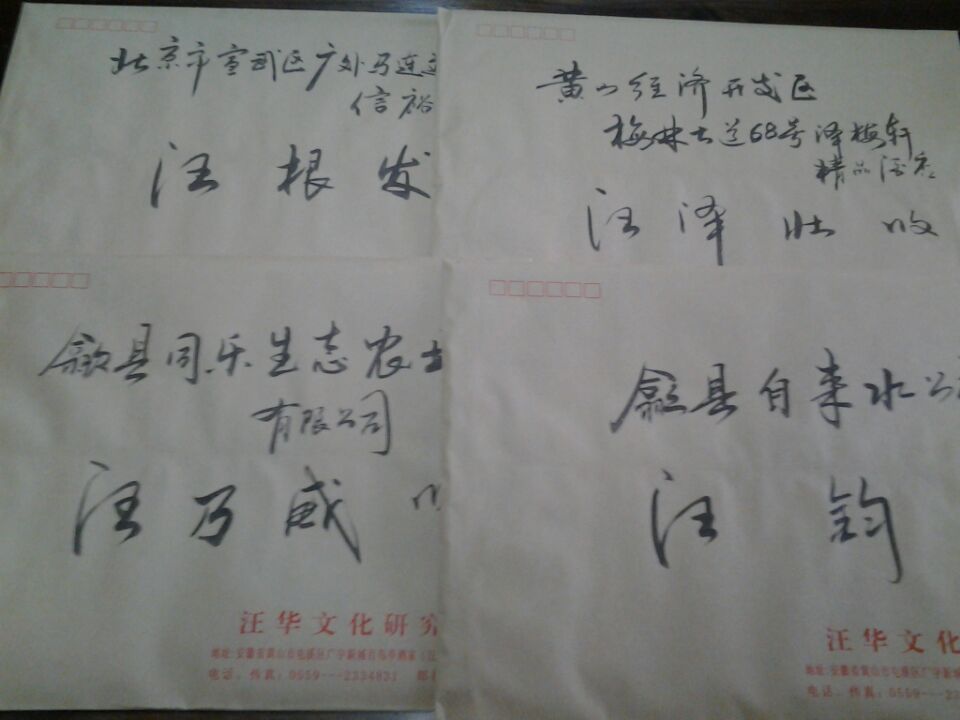 北京市宣武区广外马连道
信裕
汪根发
黄山经济开发区
梅林大道68号泽梅轩
精品酒店
汪泽壮 收
歙县同乐生态农业
有限公司
汪乃威 收
汪华文化研究
电话、传真:0559---2334831
歙县自来水公
汪钧
汪华文化
地址:安徽省黄山市屯溪区广宇新城
电话、传真:0559---23